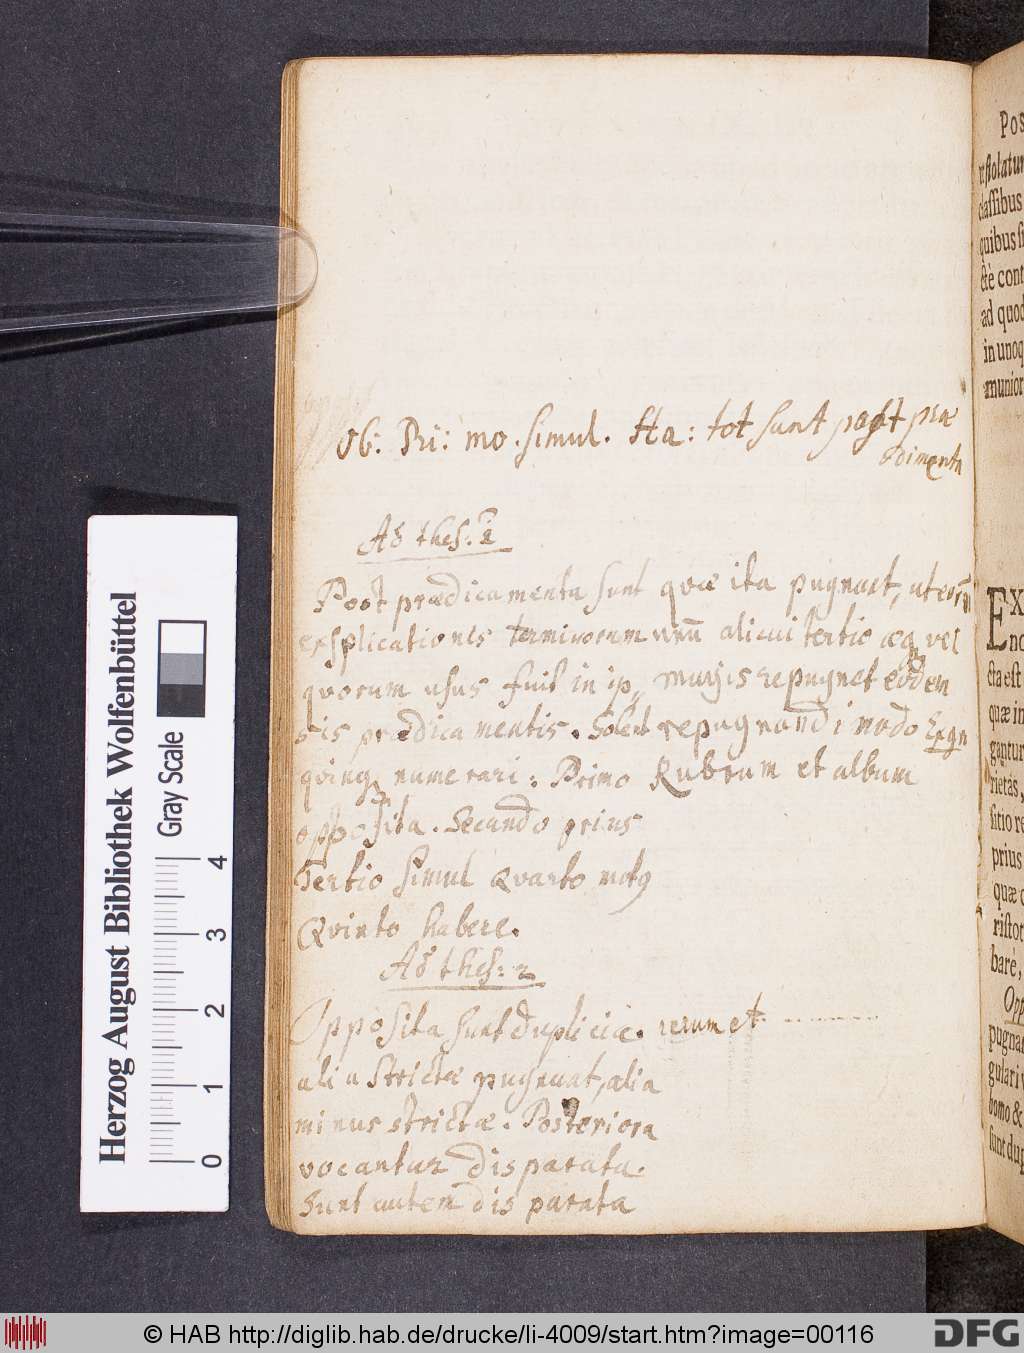 Ob: Pri: mo. simul. Ha: tot sunt post præ
dimenta
Ad thes: 1
Post prædicamenta sunt quæ ita pugnant, ut
explicationis terminorum unū alicui tertio æq vel
quorum usus fuit in ip magis repugnet eodem
sis prædicamentis. Solent repugnandi modo
quinq numerari: Primo Rubrum et album
opposita. Secundo prius
Tertio simul Quarto motq
Quinto habere.
Ad thes: 2
Opposita sunt duplicia. rerum et
alia strictæ pugnant, alia
minus strictæ. Posteriora
vocantur disparata.
Sunt autem disparata
Pos
classibus
quibus
ctè cont
ad quod
in unoq
munior
EX
no
cta est
quæ in
gantur
rietas,
sitio re
prius
quæ
ristot
bare,
Opp
pugna
gulari
homo &
sunt dup
Herzog August Bibliothek Wolfenbüttel
Gray Scale
0 1 2 3 4
© HAB http://diglib.hab.de/drucke/li-4009/start.htm?image=00116
DFG